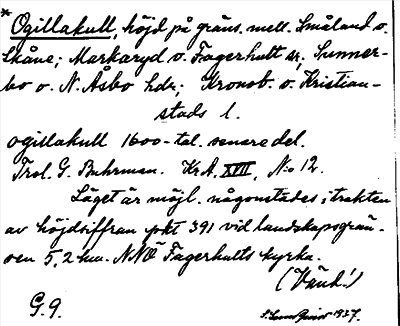 * Ogillakull, höjd på gräns. mell. Småland o.
Skåne; Markaryd o. Fagerhult sr, Sunner-
bo o. N. Åsbo hdr; Kronob. o. Kristian-
stads l.
ogillakull 1600-tal. senare del.
Trol. G. Buhrman. Kr.A. XVII, No 12.
Läget är möjl. någonstädes i trakten
av höjdsiffran pkt 391 vid landskapsgrän-
sen 5,2 km. NNÖ Fagerhults kyrka.
(Vänd!)
G. 9.
1927.